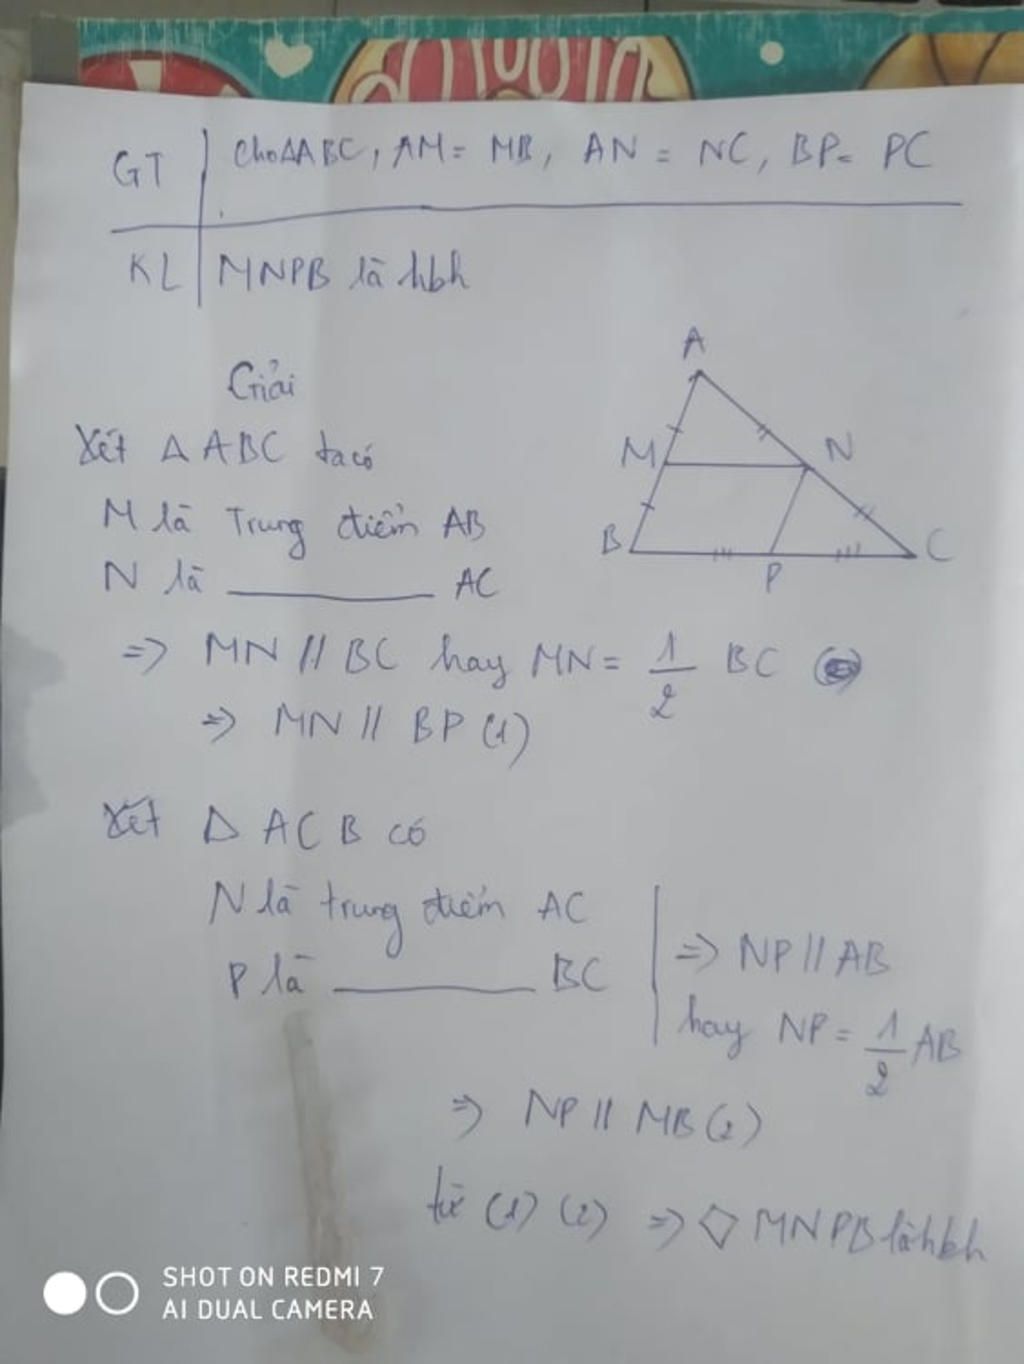 GT | Cho ΔABC, AM = MB, AN = NC, BP = PC
KL | MNPB là hbh
Giải
Xét Δ ABC ta có
M là Trung điểm AB
N là ________ AC
=> MN // BC hay MN = 1/2 BC
=> MN // BP (1)
A
M
N
B
P
C
Xét Δ ACB có
N là trung điểm AC
P là ________ BC
=> NP // AB
hay NP = 1/2 AB
=> NP // MB (2)
từ (1) (2) => ◇ MNPB là hbh
SHOT ON REDMI 7
AI DUAL CAMERA